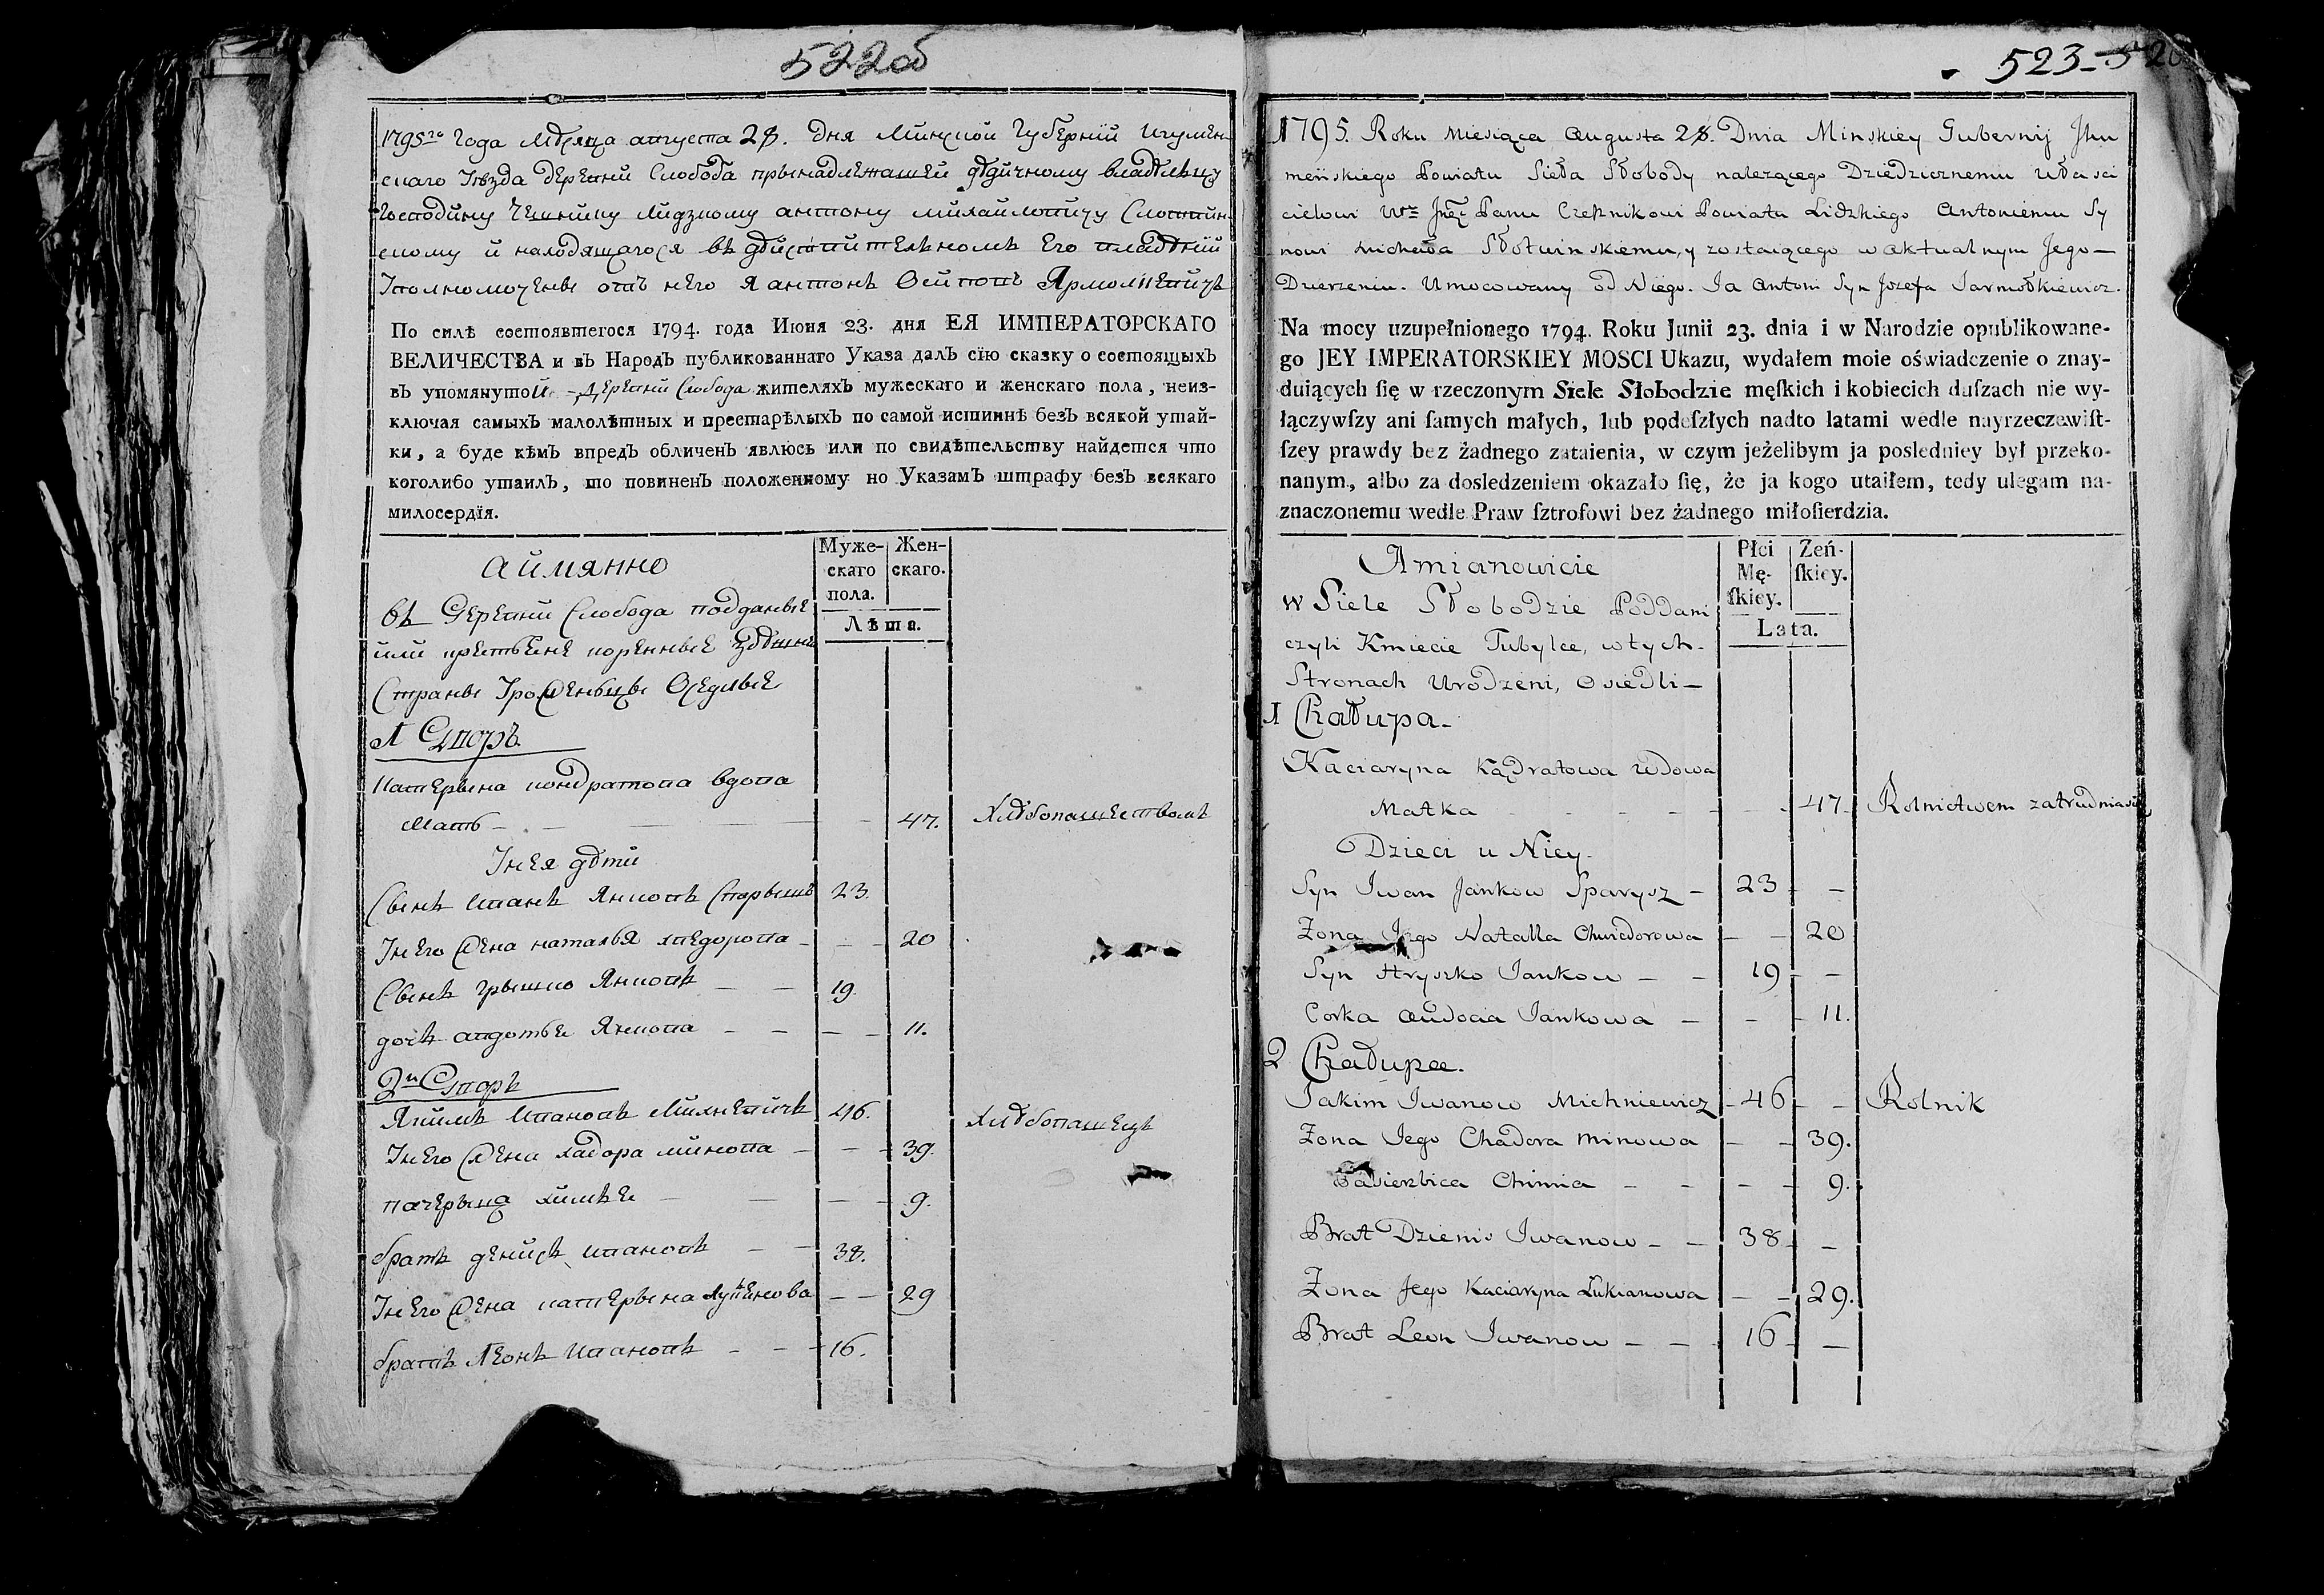 522об
1795го года мѣсяца августа 28. дня Минской Губернїи Игумен-
скаго уѣзда деревни Слобода принадлежащей дѣдичному владѣльцу
Господину Чешнику Лидзкому антону михайловичу Слотвин-
скому и находящагося въ дѣйствительномъ его владѣнїи
уполномоченны отъ него я антонъ Осиповъ Ярмолкевичъ
По силѣ состоявшегося 1794. года Июня 23. дня ЕЯ ИМПЕРАТОРСКАГО
ВЕЛИЧЕСТВА и въ Народъ публикованнаго Указа далъ сїю сказку о состоящыхъ
въ упомянутой деревни Слобода жителяхъ мужескаго и женскаго пола, неиз-
ключая самыхъ малолѣтныхъ и престарѣлыхъ по самой истиннѣ безъ всякой утай-
ки, а буде кѣмъ впредь обличенъ явлюсь или по свидѣтельству найдется что
коголибо утаилъ, то повиненъ положенному по Указамъ штрафу безъ всякаго
милосердїя.
Муже-
скаго
пола.
Жен-
скаго.
Лѣта.
аймянно
въ Деревни Слобода подданые
или крестьяне коренные здешне
Страны Урожденцы Оседлые
1 Дворъ
катерына кондратова вдова
Мать - - 47. Хлѣбопашествомъ
У нея дѣти
Сынъ иванъ Янковъ Спарышъ 23.
У него жена наталья хведорова - - 20
Сынъ грышко Янковъ - - 19.
дочь авдотья Янкова - - - - 11.
2й Дворъ
Якимъ ивановъ Михневичъ 46. Хлѣбопашецъ
У него жена хадора минова - - 39.
пачерыца химъя - - - 9.
братъ денисъ ивановъ - - 38.
У него жена катерына лукянова - - 29
братъ Леонъ ивановъ - - 16.
523
1795. Roku Miesiąca Augusta 28. Dnia Minskiey Gubernij Jhu
meńskiego Powiatu Sieła Słobody nalezącego Dziedzicznemu Własci
cielowi Panu Czesnikowi Powiatu Lidzkiego Antoniemu Sy
nowi Michała Słotwinskiemu, y zostaiącego w aktualnym Jego —
Dzierzeniu. Umocowany od Niego. Ja Antoni Syn Jozefa Jarmołkiewicz.
Na mocy uzupełnionego 1794. Roku Junii 23. dnia i w Narodzie opublikowane-
go JEY IMPERATORSKIEY MOSCI Ukazu, wydałem moie oświadczenie o znay-
duiących ſię w rzeczonym Siele Słobodzie męſkich i kobiecich duſzach nie wy-
łączywſzy ani ſamych małych, lub podeſzłych nadto latami wedle nayrzeczewiſt-
ſzey prawdy bez żadnego zataienia, w czym jeżelibym ja posledniey był przeko-
nanym, albo za dosledzeniem okazało ſię, że ja kogo utaiłem, tedy ulegam na-
znaczonemu wedle Praw ſztrofowi bez żadnego miłoſierdzia.
Płci
Mę-
ſkiey.
Zeń-
ſkiey.
Lata.
Amianowicie
w Siele Słobodzie Poddani
czyli Kmiecie Tubylce, w tych-
Stronach Urodzeni, Osiedli -
1 Chałupa -
Kaciaryna Kądratowa Wdowa
Matka - - - - - - 47. Rolnictwem zatrudnia się
Dzieci u Niey.
Syn Iwan Jankow Sparysz - 23 - -
Zona Jego Natalla Chwiedorowa - - 20
Syn Hryszko Jankow - - 19 - -
Corka Audocia Jankowa - - - 11.
2 Chałupa.
Jakim Iwanow Michniewicz - 46 - - Rolnik
Zona Jego Chadora Minowa - - 39.
Pasierzbica Chimia - - - - 9.
Brat Dzienis Iwanow - - 38 - -
Zona Jego Kaciaryna Łukianowa - - 29.
Brat Leon Iwanow - - - 16 - -